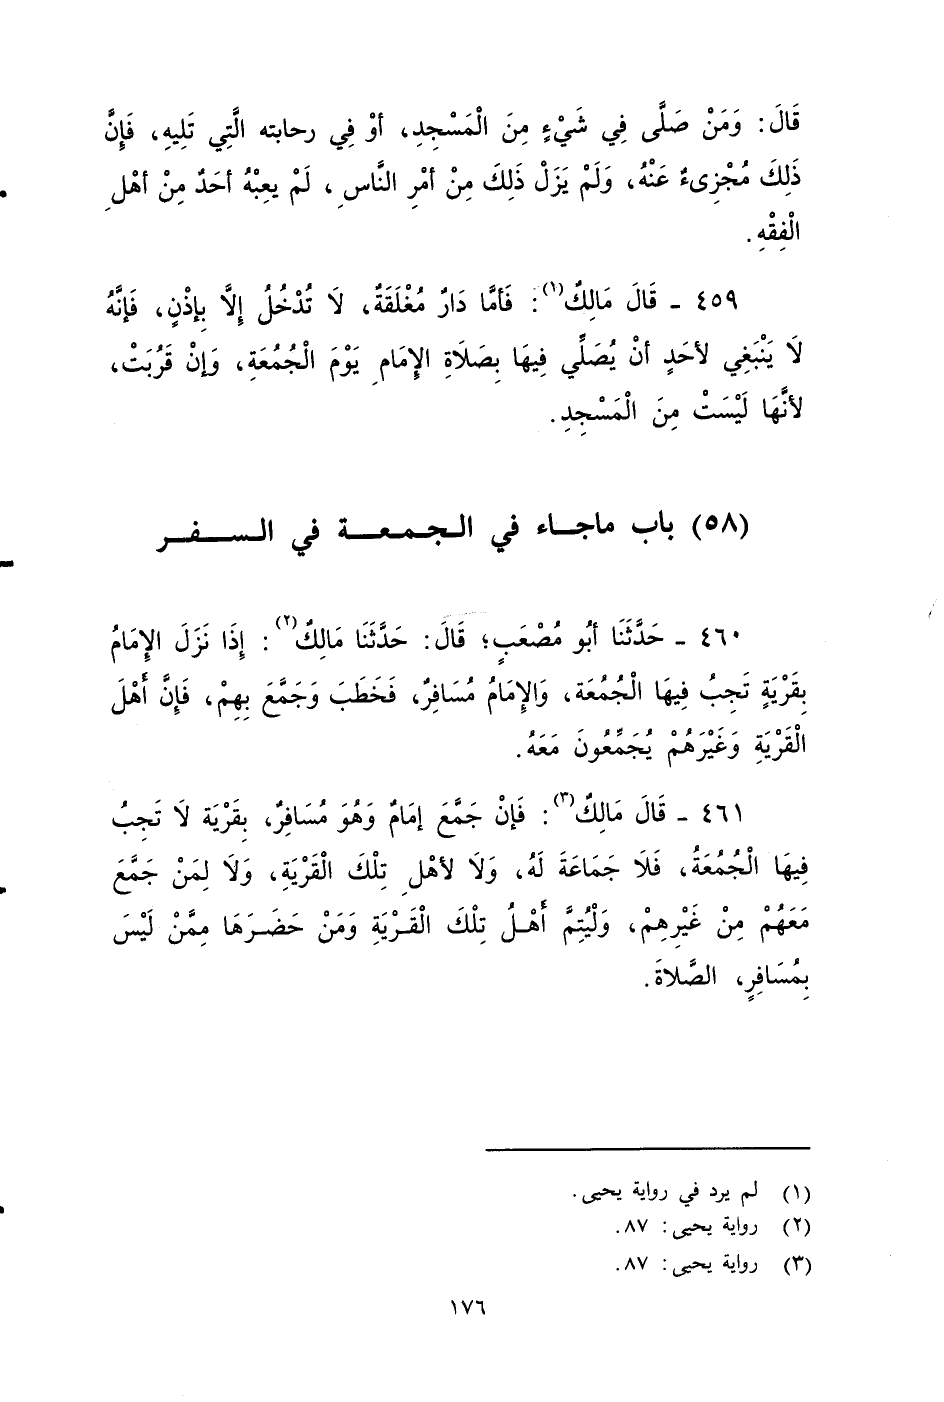 قَالَ: وَمَنْ صَلَّى فِي شَيْءٍ مِنَ الْمَسْجِدِ، أوْ فِي رحابته الَّتِي تَلِيهِ، فَإِنَّ
ذَلِكَ مُجْزِىءٌ عَنْهُ، وَلَمْ يَزَلْ ذَلِكَ مِنْ أمْرِ النَّاسِ، لَمْ يعِبْهُ أحَدٌ مِنْ أهْلِ
الْفِقْهِ.
٤٥٩ - قَالَ مَالِكٌ(١): فَأمَّا دَارٌ مُغْلَقَةٌ، لَا تُدْخُلُ إِلَّا بِإذْنٍ، فَإنَّهُ
لَا يَنْبَغِي لأحَدٍ أنْ يُصَلِّي فِيهَا بِصَلَاةِ الإِمَامِ يَوْمَ الْجُمُعَةِ، وَإنْ قَرُبَتْ،
لأنَّهَا لَيْسَتْ مِنَ الْمَسْجِدِ.
(٥٨) باب ماجاء في الجمعة في السفر
٤٦٠ - حَدَّثَنَا أبُو مُصْعَبٍ؛ قَالَ: حَدَّثَنَا مَالِكٌ(٢): إِذَا نَزَلَ الإِمَامُ
بِقَرْيَةٍ تَجِبُ فِيهَا الْجُمُعَة، وَالإِمَامُ مُسَافِرٌ، فَخَطَبَ وَجَمَّعَ بِهِمْ، فَإِنَّ أَهْلَ
الْقَرْيَةِ وَغَيْرَهُمْ يُجَمِّعُونَ مَعَهُ.
٤٦١ - قَالَ مَالِكٌ(٣): فَإنْ جَمَّعَ إمَامٌ وَهُوَ مُسَافِرٌ، بِقَرْيَة لَا تَجِبُ
فِيهَا الْجُمُعَةُ، فَلَا جَمَاعَةَ لَهُ، وَلَا لأهْلِ تِلْكَ الْقَرْيَةِ، وَلَا لِمَنْ جَمَّعَ
مَعَهُمْ مِنْ غَيْرِهِمْ، وَلْيُتِمَّ أَهْلُ تِلْكَ الْقَرْيَةِ وَمَنْ حَضَرَهَا مِمَّنْ لَيْسَ
بِمُسَافِرٍ، الصَّلاةَ.
(١) لم يرد في رواية يحيى.
(٢) رواية يحيى: ٨٧.
(٣) رواية يحيى: ٨٧.
١٧٦